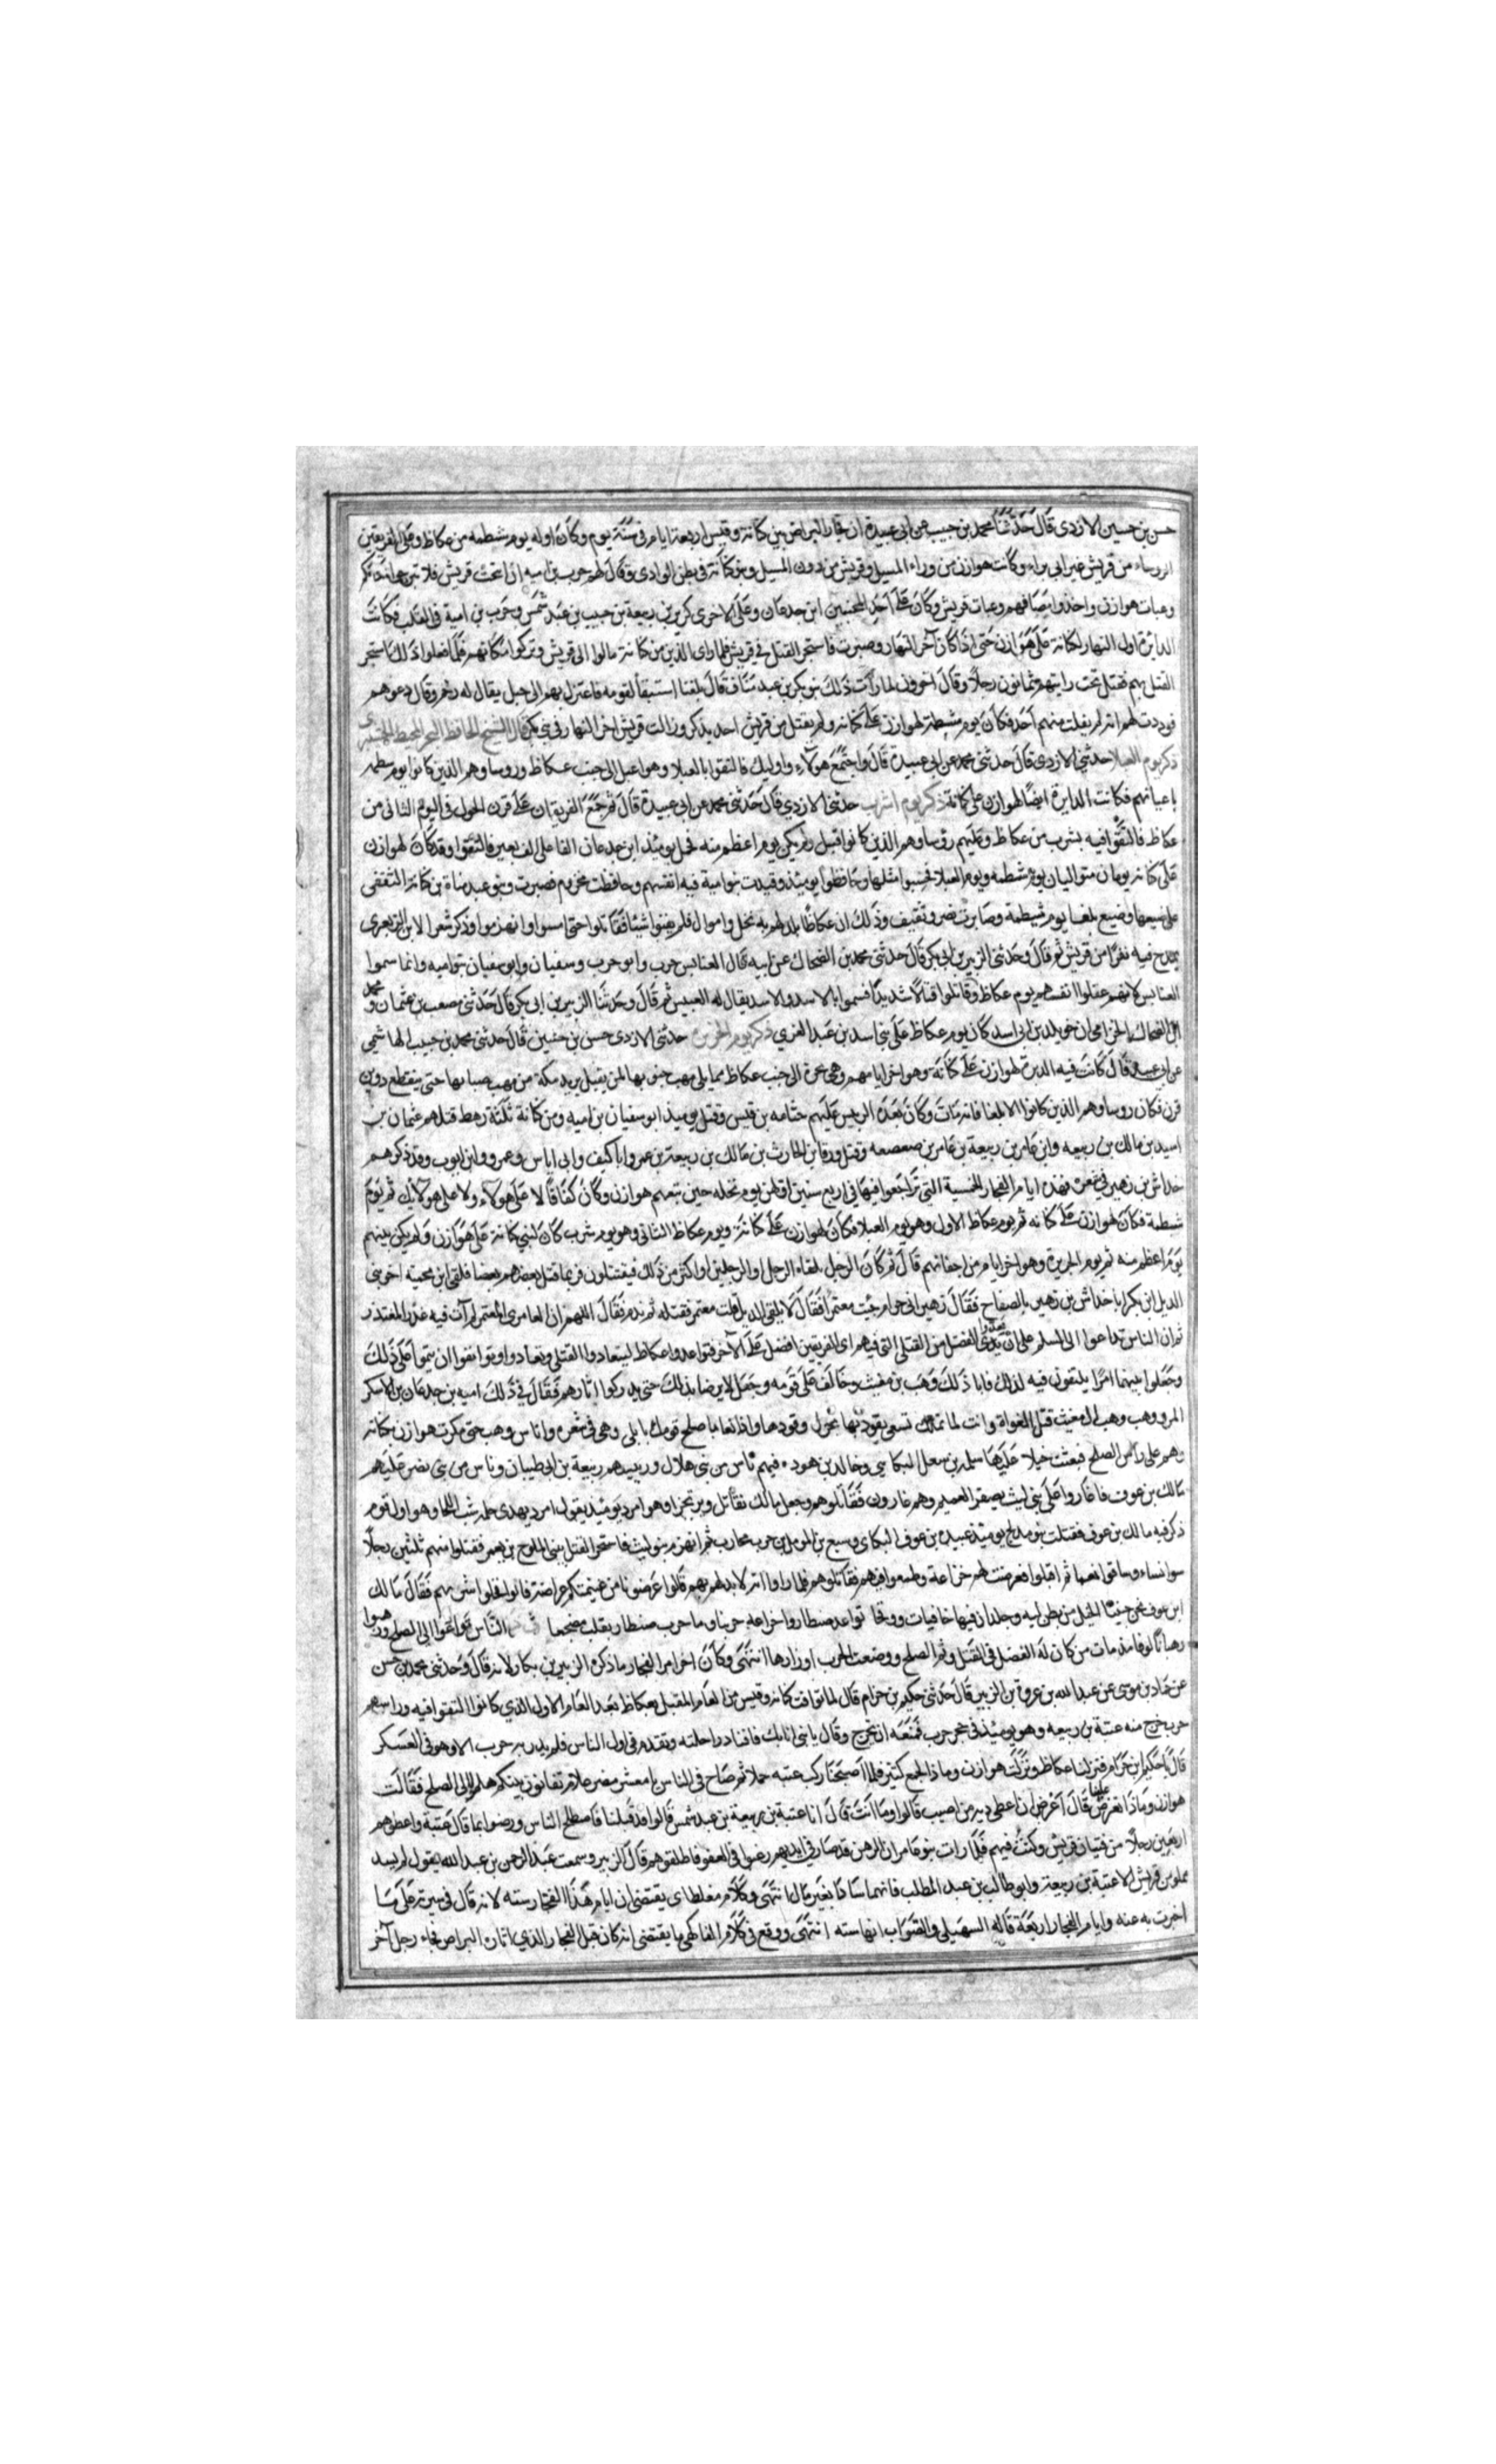 حسن بن حسين الازدى قال حدثنا محمد بن حبيب عن ابى عبيدة ان فجار البراض بين كنانة وقيس اربعة ايام فى ستة يوم وكان اوله يوم شمطه من عكاظ وعلى الفريقين
الروساء من قريش غير ابى براء وكانت هوازن من وراء المسيل وقريش من دون المسيل وبنو كنانة فى بطن الوادى وقال لهم حرب بن اميه ان اتحت قريش فلا تبرحوا مكانكم
وعبات هوازن واخذوا مصافهم وعبات قريش وكان على احد المجنبتين ابن جدعان وعلى الاخرى كريز بن ربيعة بن حبيب بن عبد شمس وحرب بن امية فى القلب فكانت
الدايرة اول النهار لكنانة على هوازن حتى اذا كان آخر النهار وصبرت فاستحر القتل فى قريش فلما راى الذين من كنانة مالوا الى قريش وتركوا مكانهم فلما فعلوا ذلك استحر
القتل بهم فقتل تحت رايتهم ثمانون رجلا وقال اخرون لما رات ذلك بنو بكر بن عبد مناف قال بلعا استبقا لقومه فاعتزل بهم الى جبل يقال له رخم وقال دعوهم
فوددت لهم انه لم يفلت منهم احد فكان يوم شمطة لهوازن على كنانه ولم يقتل من قريش احد يذكر وزالت قريش اخر النهار فى بنى بكر قال الشيخ الحافظ
ذكر يوم العبلا حدثنى الازدى قال حدثنى محمد عن ابى عبيدة قال واجتمع هولاء واوليك فالتقوا بالعبلا وهو اعبل الى جنب عكاظ وروساوهم الذين كانوا يوم شمطه
باعيانهم فكانت الدايرة ايضا لهوازن على كنانة ذكر يوم شرب حدثنى الازدى قال حدثنى محمد عن ابى عبيدة قال ثم جمع الفريقان على قرن الحول فى اليوم الثانى من
عكاظ فالتقوا فيه بشرب من عكاظ وعليهم روساوهم الذين كانوا قبل ولم يكن يوم اعظم منه فحمل يومئذ ابن جدعان الفا على الف بعير فالتقوا وقد كان لهوازن
على كنانه يومان متواليان يوم شمطه ويوم العبلا فخشوا مثلها وحافظوا يومئذ وقيدت بنو امية فيه انفسهم وحافظت مخزوم فصبرت وبنو عبد مناة بن كنانة
يوم شمطة وصابرت نصر وثقيف وذلك ان عكاظا بلد لهم به نخل واموال فلم يغنوا شيئا فقاتلوا حتى امسوا وانهزموا وذكر شعرا لابن الزبعرى
يمدح فيه نفرا من قريش ثم قال وحدثنى الزبير بن ابى بكر قال حدثنى محمد بن الضحاك عن ابيه قال العنابس حرب وابو حرب وسفيان وابو سفيان بنو اميه وانما سموا
العنابس لانهم عقلوا انفسهم يوم عكاظ وقاتلوا قتالا شديدا فسموا بالاسد والاسد يقال له العنبس ثم قال وحدثنا الزبير بن ابى بكر قال حدثنى مصعب بن عثمان ومحمد
ابن الضحاك الحزامى ان خويلد بن اسد كان يوم عكاظ على بنى اسد بن عبد العزى ذكر يوم الحريرة حدثنى الازدى حسن بن حسين قال حدثنى محمد بن حبيب الهاشمى
عن ابى عبيدة قال كانت فيه الدبرة لهوازن على كنانة وهو اخر ايامهم وهى حرة الى جنب عكاظ مما يلى مهب جنوبها لمن يقبل يريد مكة من مهب صباها حتى ينقطع دوين
قرن فكان روساوهم الذين كانوا الا بلعا فانه مات وكان بعده الريس عليهم جثامه بن قيس وقتل يوميذ ابو سفيان بن اميه ومن كنانة ثلثة رهط قتلهم عثمان بن
اسيد بن مالك بن ربيعه وابن عامر بن ربيعة بن عامر بن صعصعه وقتل ورقا بن الحارث بن مالك بن ربيعة بن عمرو ابا كيف وابى اياس وعمرو وابن ايوب وقد ذكرهم
خداش بن زهير فى شعره فهذه ايام الفجار الخمسة التى تزاحفوا فيها فى اربع سنين اولهن يوم نخله حين تبعهم هوازن وكان كفافا لا على هولاء ولا على هولائك ثم يوم
شمطة فكان لهوازن على كنانه ثم يوم عكاظ الاول وهو يوم العبلا فكان لهوازن على كنانة ويوم عكاظ الثانى وهو يوم شرب كان لبنى كنانة على هوازن ولم يكن بينهم
يوم اعظم منه ثم يوم الحريرة وهو اخر ايام من اجفانهم قال ثم كان الرجل يلقاه الرجل والرجلين او اكثر من ذلك فيقتتلون فربما قتل بعضهم بعضا فلقى ابن محمية اخو بنى
الديل ابن بكر ابا خداش بن زهير بالصفاح فقال زهير انى حرام جيت معتمرا فقال لا يلقى الدهر قلت معتمر فقتله ثم ندم فقال اللهم ان العامرى المعتمر لم آت فيه عذر المعتذر
ثم ان الناس تداعوا الى السلم على ان يدى الفضل من القتلى التى فيهم اى الفريقين افضل على الآخر فتواعدوا عكاظ ليتعادوا القتلى وتعادوا وتواثقوا ان يتموا على ذلك
وجعلوا بينهما امرا يلتقون فيه لذلك فابا ذلك وهب بن معتب وخالف على قومه وجعل لا يرضا بذلك حتى يدركوا اثارهم فقال فى ذلك اميه بن جدعان بن الاسكر
المرو وهب وهب ال معتب قتل الغواة وانت لما تملك تسعى يقود بها نحول وقودها واذا تعا صلح قومك تابلى وهى فى شعره واناس وهب حتى مكرت هوازن بكنانه
وهم على راس الصلح فبعثت خيلا عليها سلمه بن سعل البكايى وخالد بن هوده فيهم ناس من بنى هلال ورييسهم ربيعة بن ابى ظبيان وناس من بنى نصر عليهم
مالك بن عوف فاغاروا على بنى ليث بصفر الغميم وهم غارون فقاتلوهم وجعل مالك يقاتل ويرتجز وهو امرد يومئذ يقول امرد يهدى حلمه شيب اللحا وهو اول يوم
ذكر فيه مالك بن عوف فقتلت بنو مدلج يوميذ عبيده بن عوف البكاى وسبيع بن المومل من حرب محارب ثم انهزم بنو ليث فاستحر القتل ببنى الملوح بن يعمر فقتلوا منهم ثلثين رجلا
سوا نساء وساقوا نعما ثم اقبلوا فعرضت لهم خزاعة وطمعوا فيهم فقاتلوهم فلما راوا انه لا يد لهم بهم قالوا عرضونا من غنيمتكم عراضة فابوا فخلوا شربهم فقال مالك
ابن عوف نحن جنبنا الخيل من بطن ليه وجلدان فيها خافيات ووقحا تواعد ضنطار واخزاعه حربنا وما حرب ضنطار يقلب مضجعا ثم ان الناس تداعوا الى الصلح ورهنوا
رهانا لوفا من مات من كان له الفضل فى القتل وثم الصلح ووضعت الحرب اوزارها انتهى وكان اخر امر الفجار ما ذكره الزبير بن بكار لانه قال وحدثنى محمد بن حسن
عن حماد بن موسى عن عبد الله بن عروة بن الزبير قال حدثنى حكيم بن حزام قال لما توافت كنانه وقيس من العام المقبل بعكاظ بعد العام الاول الذى كانوا التقوا فيه وراسهم
حرب خرج منه عتبة بن ربيعه وهو يومئذ فى حجر حرب فمنعه ان يخرج وقال يا بنى انا بك فاقتاد راحلته وتقدم فى اول الناس فلم يدر به حرب الا وهو فى العسكر
قال حكيم بن حزام فنزلنا عكاظ ونزلت هوازن وماذا الجمع كثير فلما اصبحنا ركب عتبه جملا ثم صاح فى الناس يا معشر مضر علام تفانون بينكم هلموا الى الصلح فقالت
هوازن وماذا تعرض علينا قال اعرض ان اعطى ديه من اصيب قالوا وما انت قال انا عتبة بن ربيعة بن عبد شمس قالوا قد قبلنا فاصطلح الناس ورضوا بما قال عتبة واعطوهم
اربعين رجلا من فتيان قريش وكنت فيهم فلما رات بنو عامر ان الرهن قد صار فى ايديهم رغبوا فى العفو فاطلقوهم قال الزبير وسمعت عبد الرحمن بن عبد الله يقول لم يسد
مملق من قريش الا عتبة بن ربيعة وابو طالب بن عبد المطلب فانهما سادا بغير مال انتهى وكلام مغلطاى يقتضى ان ايام هذا الفجار سته لانه قال فى سيرته على ما
اخبرت به عنه وايام الفجار اربعة قاله السهيلى والصواب انها سته انتهى ووقع فى كلام الفاكهى ما يقتضى انه كان قبل الفجار الذى اثاره البراض فجاء رجل آخر